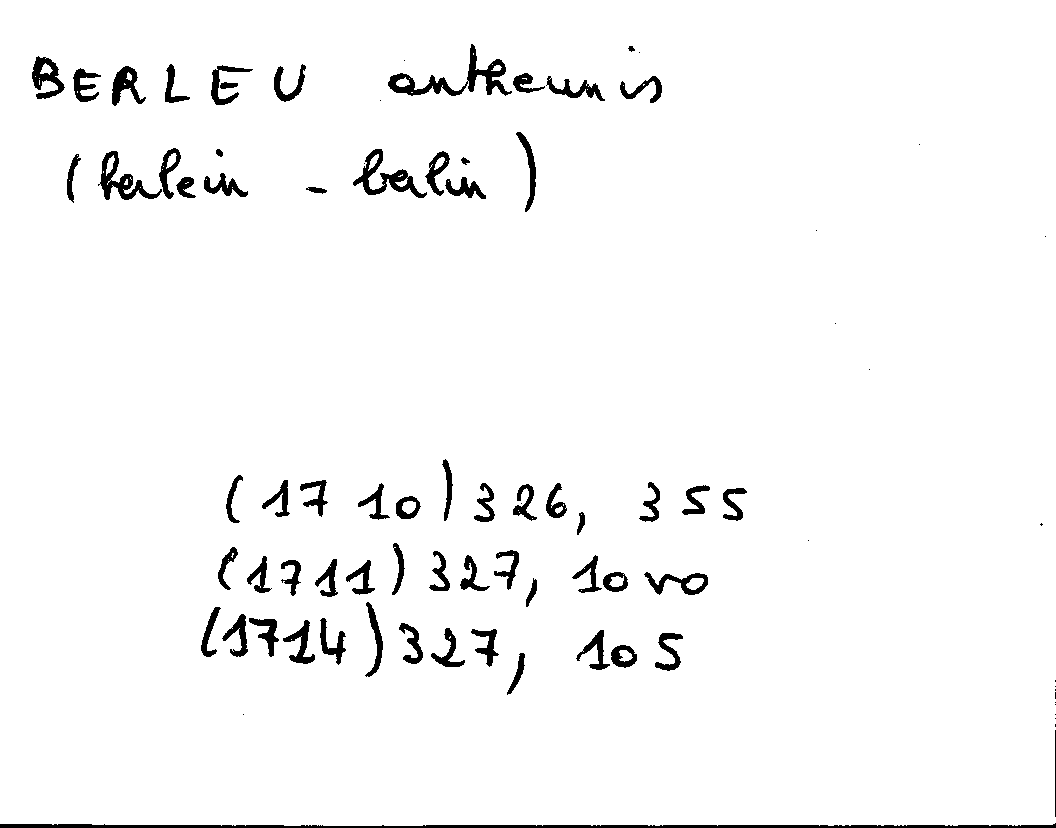 BERLEU antheunis
(berlein - berlin)
(1710) 326, 355
(1711) 327, 10 vo
(1714) 327, 105